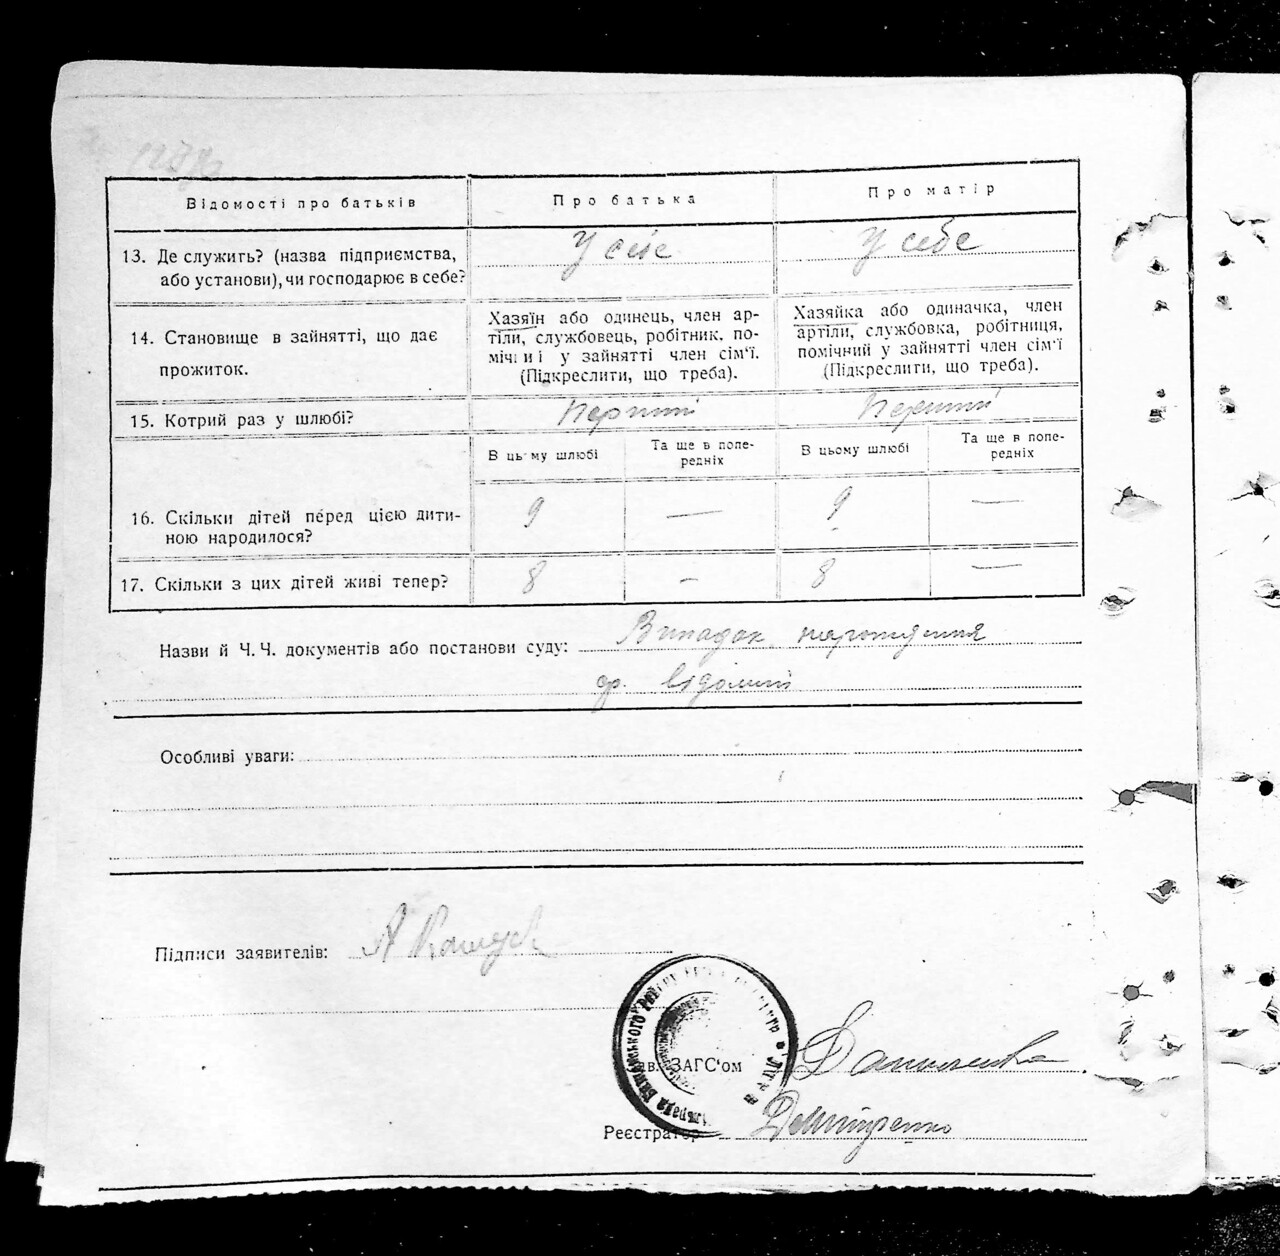 Відомості про батьків
Про батька
Про матір
13. Де служить? (назва підприємства,
або установи), чи господарює в себе?
У себе
У себе
14. Становище в зайнятті, що дає
прожиток.
Хазяїн або одинець, член ар-
тіли, службовець, робітник. по-
мічниі у зайнятті член сім'ї.
(Підкреслити, що треба).
Хазяйка або одиначка, член
артіли, службовка, робітниця,
помічний у зайнятті член сім'ї
(Підкреслити, що треба).
15. Котрий раз у шлюбі?
Перший
Перший
В цьому шлюбі
Та ще в попе-
редніх
В цьому шлюбі
Та ще в попе-
редніх
16. Скільки дітей перед цією дити-
ною народилося?
9
—
9
—
17. Скільки з цих дітей живі тепер?
8
–
8
—
Назви й Ч. Ч. документів або постанови суду: Випадок народження
відомий
Особливі уваги:
Підписи заявителів: А
ЗАГС'ом
Реєстратор Дмитренко